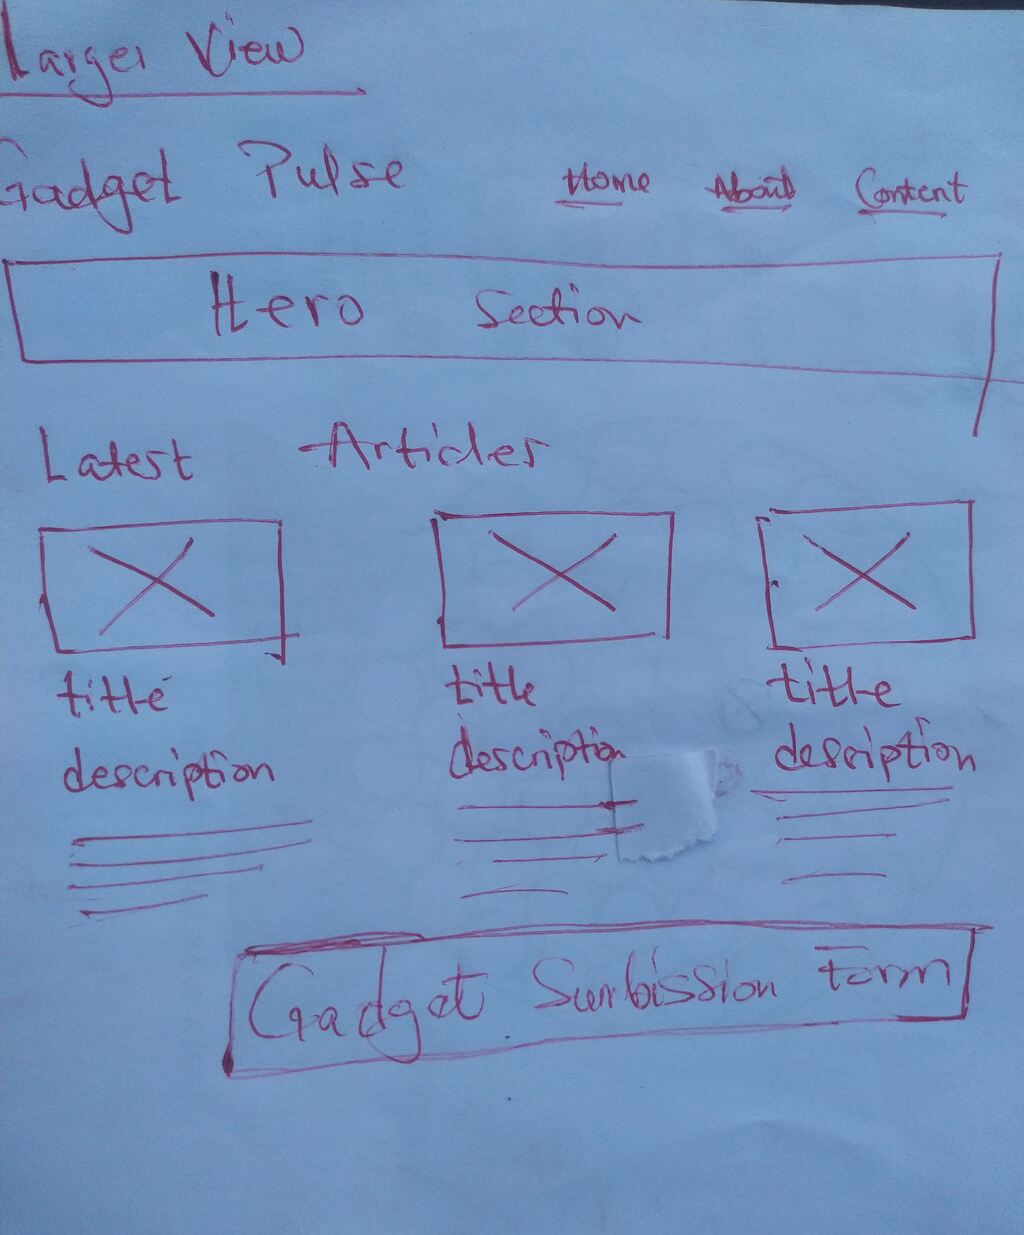 Larger View
Gadget Pulse Home About Content
Hero Section
Latest Articles
title title title
description description description
Gadget Surbission Form